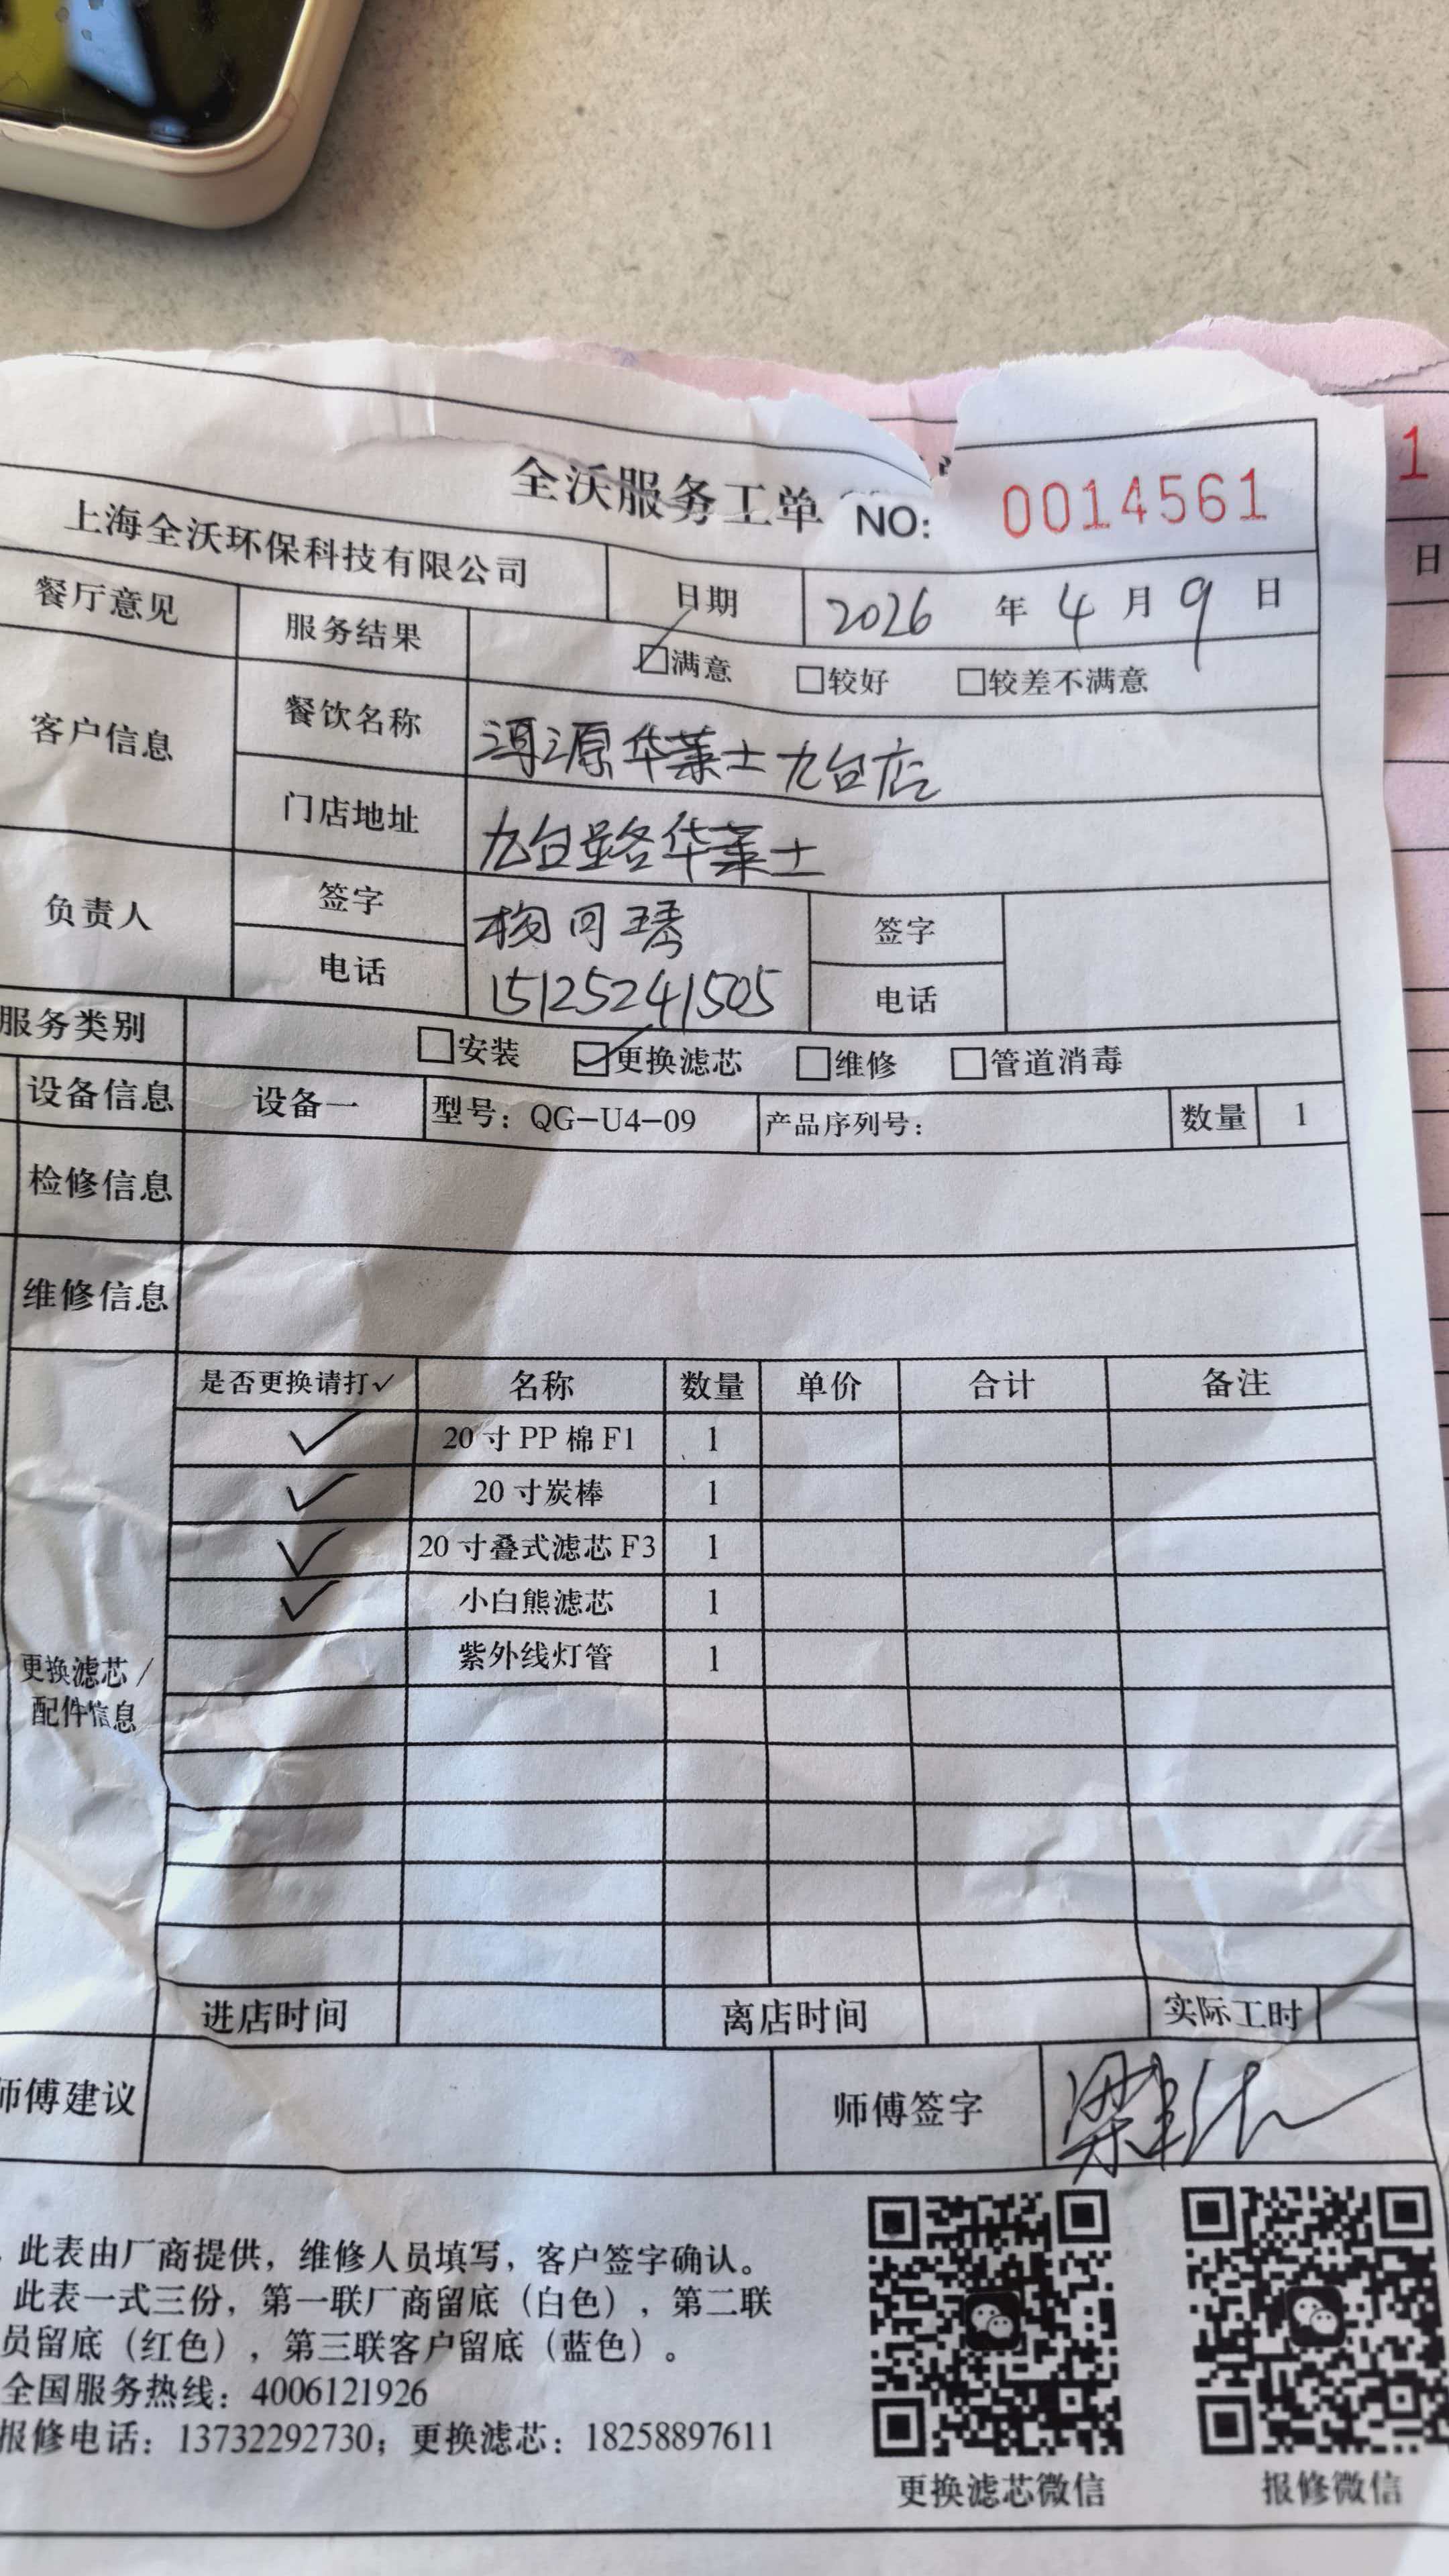 全沃服务工单 NO: 0014561
1
上海全沃环保科技有限公司 日期 2026 年 4 月 9 日
日
餐厅意见 服务结果 ☑满意 □较好 □较差不满意
客户信息 餐饮名称 源华莱士九台店
门店地址 九台路华莱士
负责人 签字 杨可 签字
电话 15125241505 电话
服务类别 □安装 ☑更换滤芯 □维修 □管道消毒
设备信息 设备一 型号：QG-U4-09 产品序列号： 数量 1
检修信息
维修信息
是否更换请打✓ 名称 数量 单价 合计 备注
✓ 20 寸 PP 棉 F1 1
✓ 20 寸炭棒 1
✓ 20 寸叠式滤芯 F3 1
✓ 小白熊滤芯 1
紫外线灯管 1
更换滤芯 /
配件信息
进店时间 离店时间 实际工时
师傅建议 师傅签字
此表由厂商提供，维修人员填写，客户签字确认。
此表一式三份，第一联厂商留底（白色），第二联
员留底（红色），第三联客户留底（蓝色）。
全国服务热线：4006121926
报修电话：13732292730；更换滤芯：18258897611
更换滤芯微信 报修微信